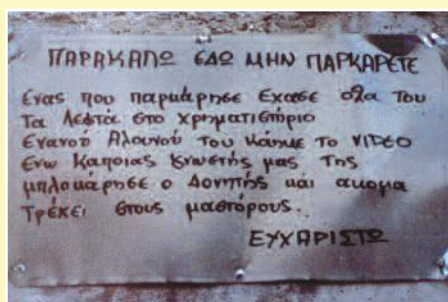 ΠΑΡΑΚΑΛΩ ΕΔΩ ΜΗΝ ΠΑΡΚΑΡΕΤΕ
ένας που παρκάρησε έχασε όλα του
τα λεφτά στο χρηματιστήριο
ενανού άλουνού του κάηκε το VIDEO
ενώ κάποιας γνωστής μας της
μπλοκάρησε ο δονητής και ακομα
τρέχει στους μαστόρους.
ΕΥΧΑΡΙΣΤΩ